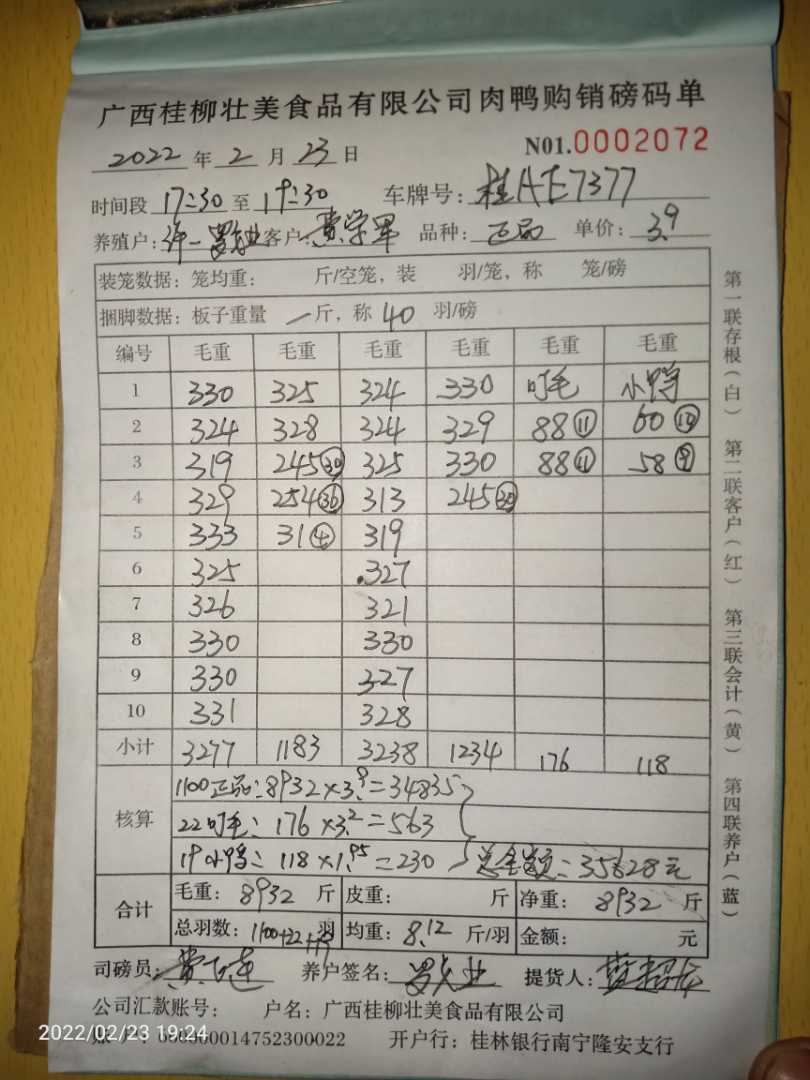 广西桂柳壮美食品有限公司肉鸭购销磅码单
2022 年 2 月 23 日 N01.0002072
时间段 17:30 至 19:30 车牌号: 桂AE7377
养殖户: 客户: 黄学军 品种: 正品 单价: 3.9
装笼数据: 笼均重: 斤/空笼, 装 羽/笼, 称 笼/磅
捆脚数据: 板子重量 一 斤, 称 40 羽/磅
编号 毛重 毛重 毛重 毛重 毛重 毛重
1 330 325 324 330 叮毛 小鸭
2 324 328 324 329 88⑪ 60⑩
3 319 245㉚ 325 330 88⑪ 58⑨
4 329 254㊱ 313 245㉚
5 333 31④ 319
6 325 327
7 326 321
8 330 330
9 330 327
10 331 328
小计 3277 1183 3238 1234 176 118
核算 1100正品: 8932×3.9=34835
22叮毛: 176×3.2=563
19小鸭: 118×1.95=230 总金额: 35628元
合计 毛重: 8932 斤 皮重: 斤 净重: 8932 斤
总羽数: 1100+22+19 羽 均重: 8.12 斤/羽 金额: 元
司磅员: 养户签名: 提货人:
公司汇款账号: 户名: 广西桂柳壮美食品有限公司
000014752300022 开户行: 桂林银行南宁隆安支行
2022/02/23 19:24
第一联存根(白) 第二联客户(红) 第三联会计(黄) 第四联养户(蓝)